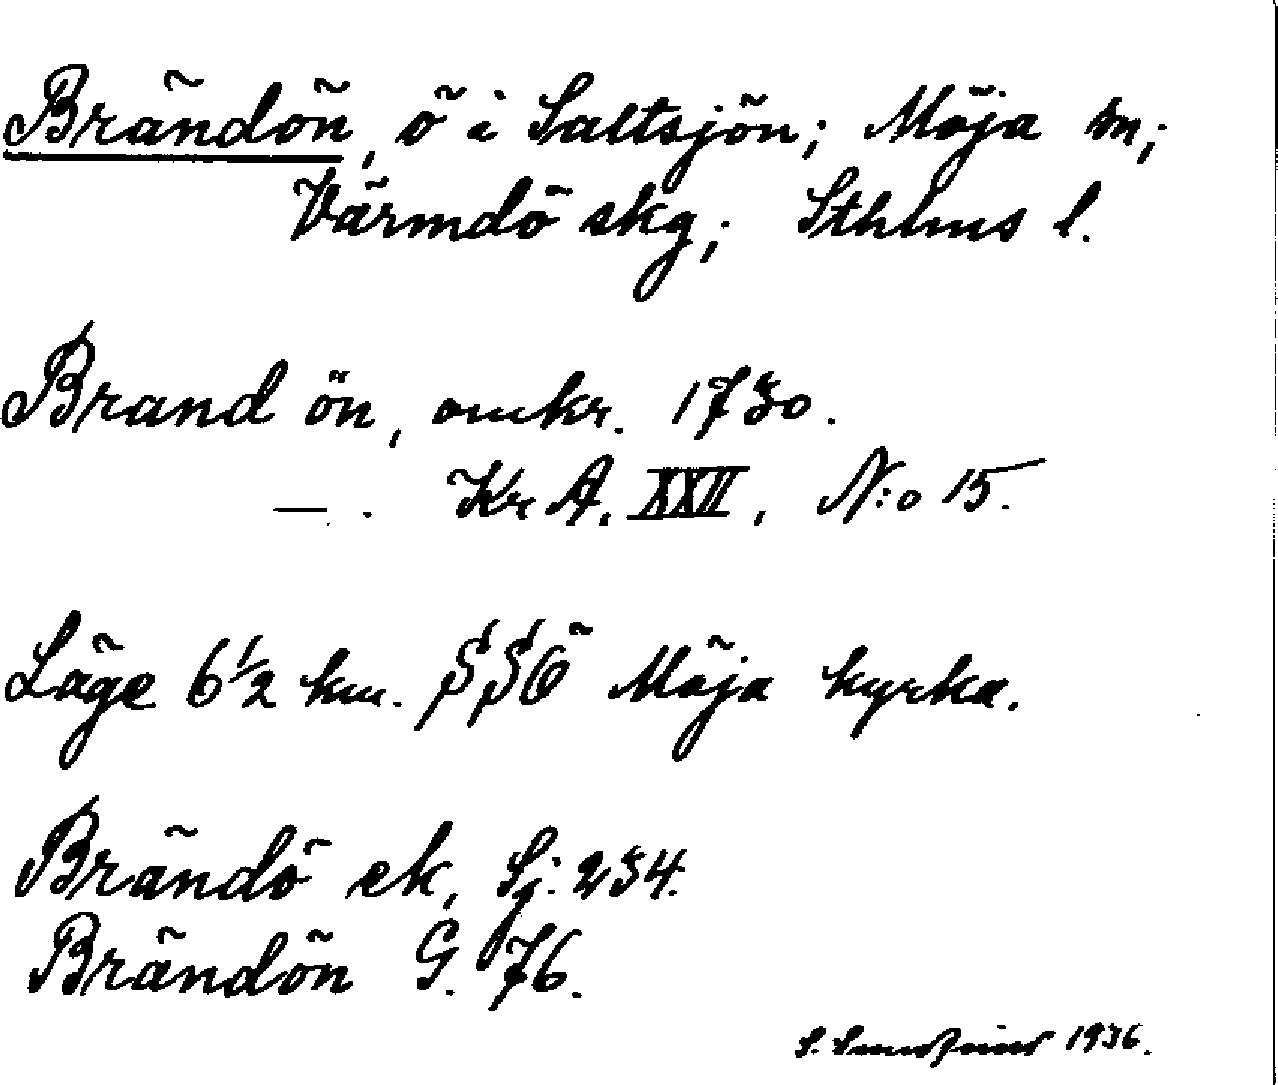 Brändön, ö i Saltsjön; Möja sn;
Värmdö skg; Sthlms l.
Brand ön, omkr. 1730.
— . Kr A. XXII, N:o 15.
Läge 6 1/2 km. SSÖ Möja kyrka.
Brändö ek, Sj. 234.
Brändön G. 76.
S. 1936.